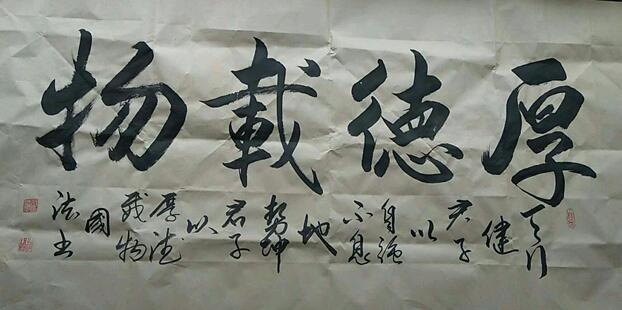 厚德載物
天行
健
君子
以
自強
不息
地
勢坤
君子
以
厚德
載物
國
法书